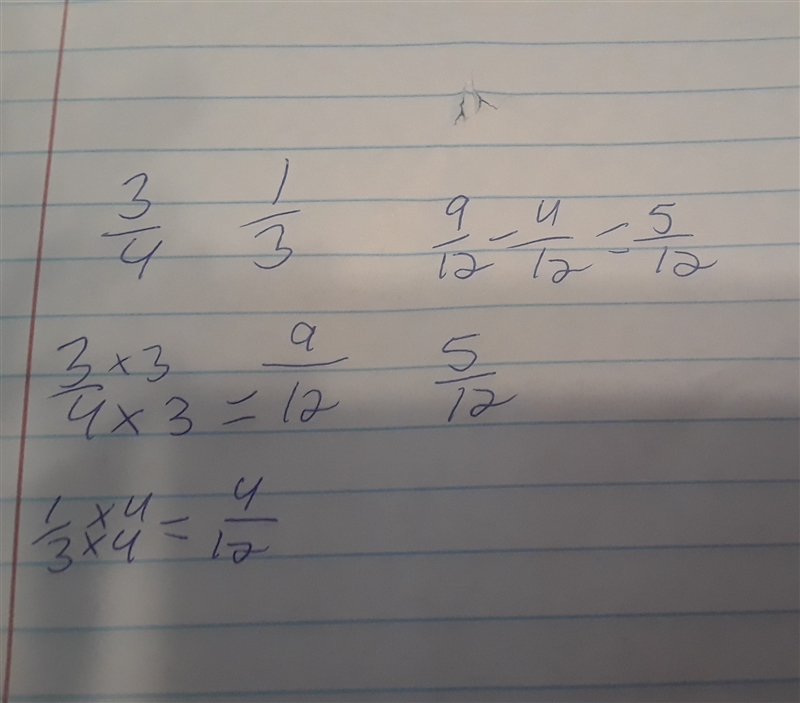 3/4 1/3 9/12 - 4/12 = 5/12
3/4 × 3 / × 3 = 9/12 5/12
1/3 × 4 / × 4 = 4/12